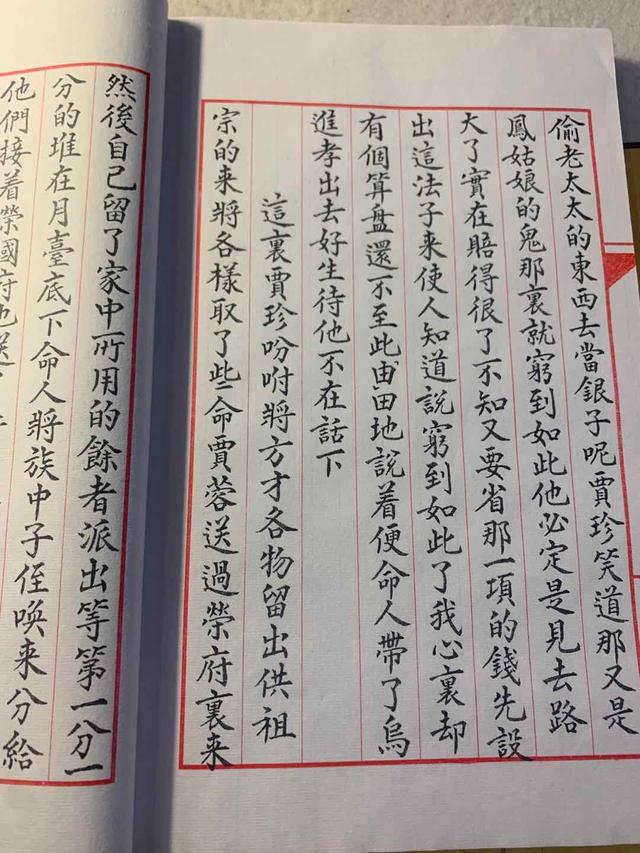 偷老太太的東西去當銀子呢賈珍笑道那又是
鳳姑娘的鬼那裏就窮到如此他必定是見去路
大了實在賠得很了不知又要省那一項的錢先設
出這法子来使人知道說窮到如此了我心裏却
有個算盤還不至此由田地說着便命人帶了烏
進孝出去好生待他不在話下
這裏賈珍吩咐將方才各物留出供祖
宗的来將各樣取了些命賈蓉送過榮府裏来
然後自己留了家中所用的餘者派出等第一分一
分的堆在月臺底下命人將族中子侄喚来分給
他們接着榮國府也送